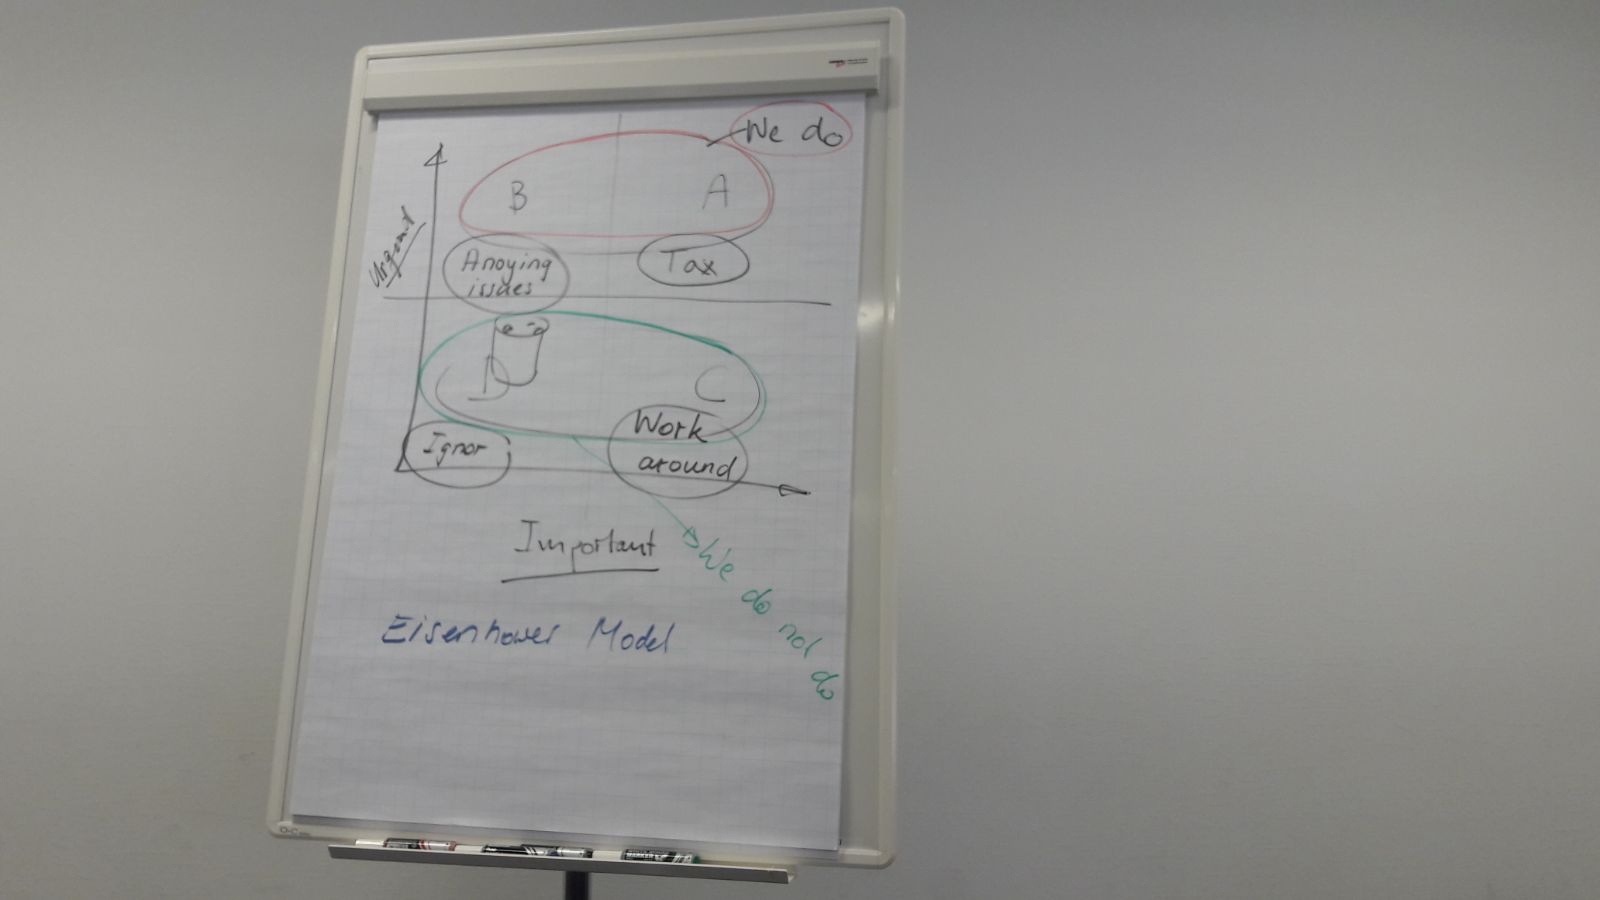 We do
B
A
Urgent
Anoying
issues
Tax
D
C
Ignor
Work
around
Important
We do not do
Eisenhower Model